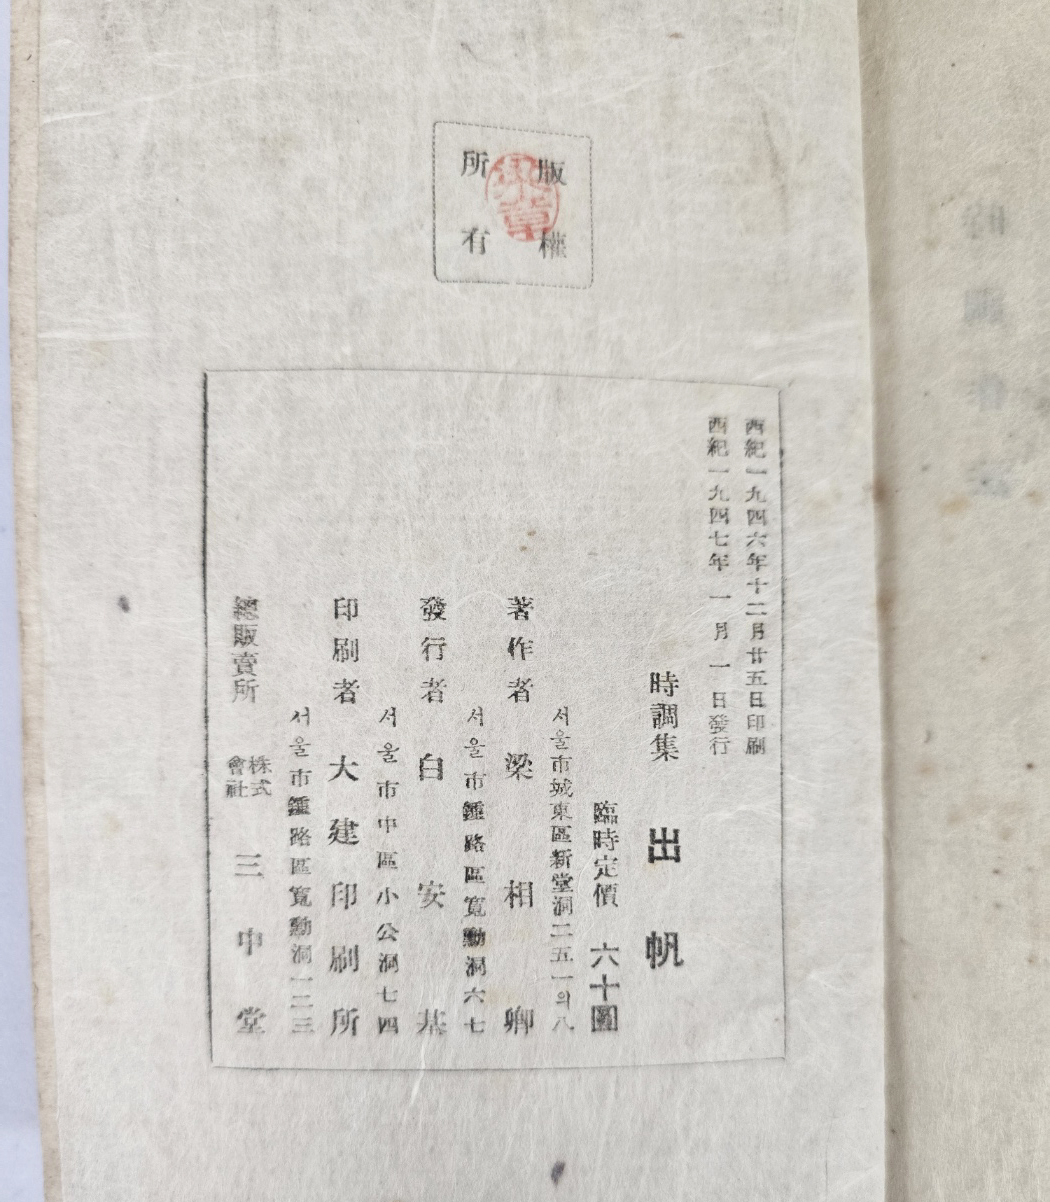 版權
所有
梁章
西紀一九四六年十二月廿五日印刷
西紀一九四七年 一 月 一 日發行
時調集 出帆
臨時定價 六十圓
서울市城東區新堂洞二五一의八
著作者 梁相卿
서울市鍾路區寬勳洞六七
發行者 白安基
서울市中區小公洞七四
印刷者 大建印刷所
서울市鍾路區寬勳洞一二三
總販賣所 株式會社 三中堂